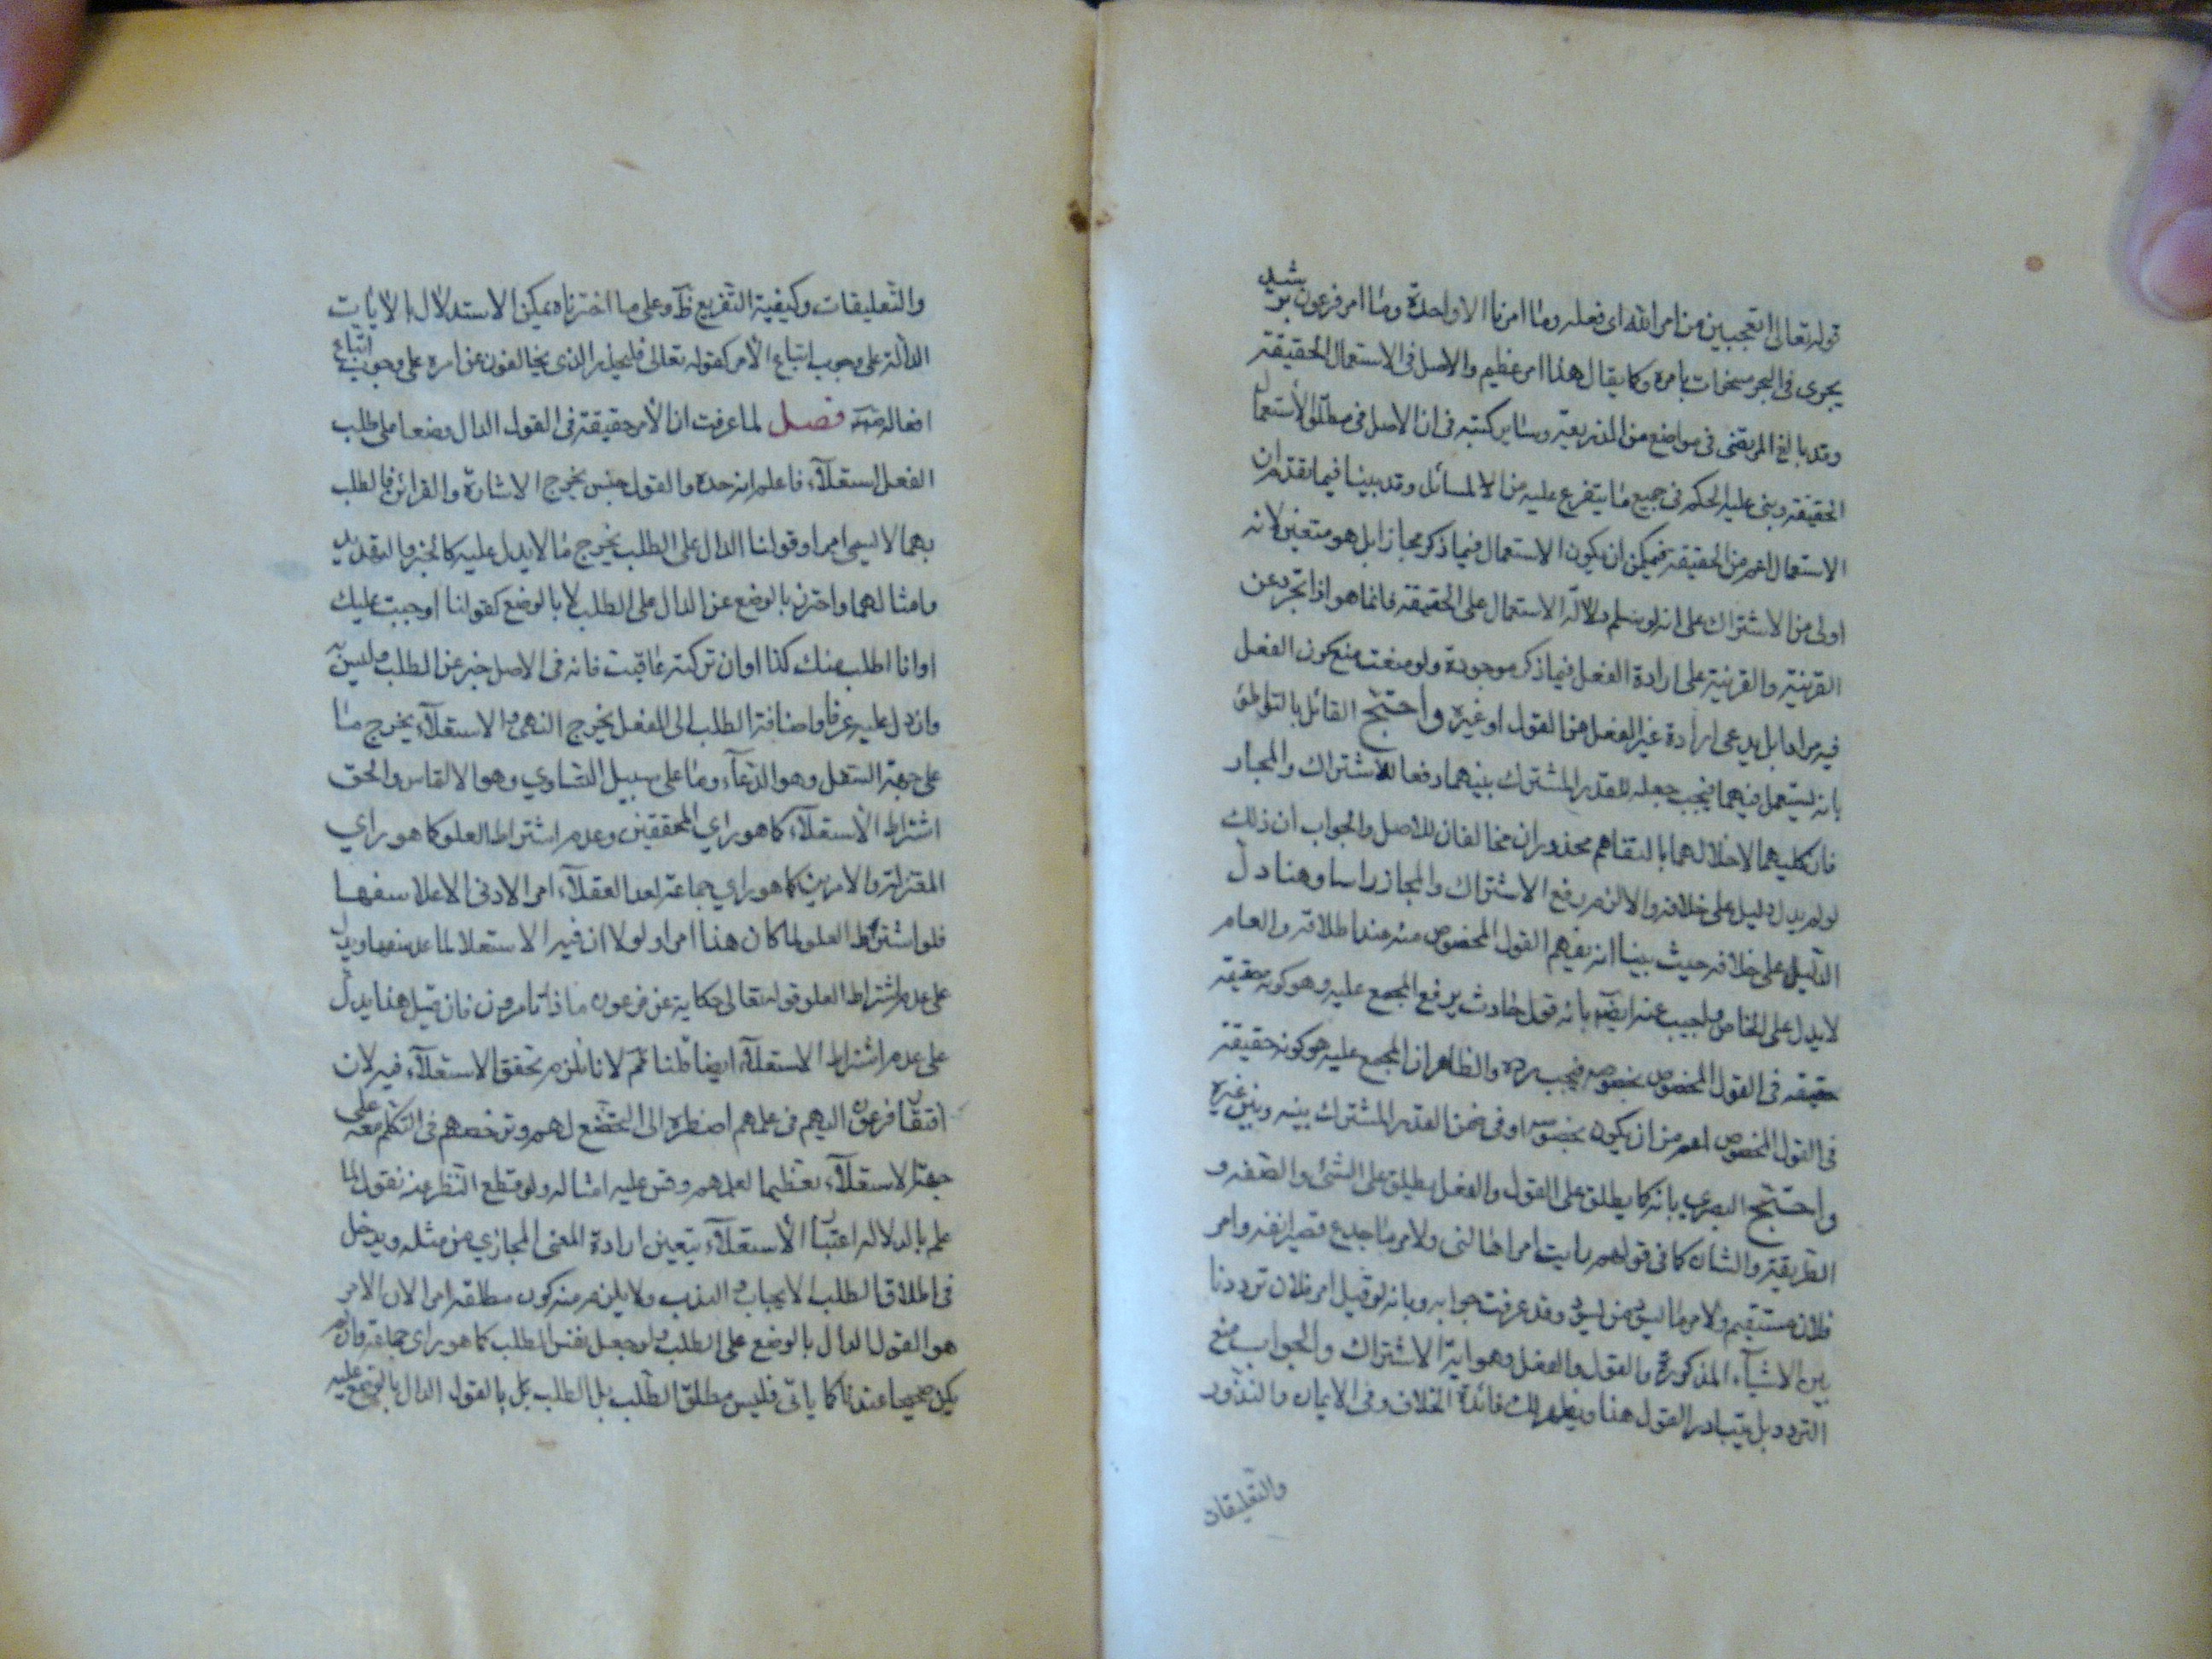 قوله تعالى اتعجبين من امر الله اى فعله وما امرنا الا واحدة وما امر فرعون برشيد
يجرى فى البحر مسخرات بامره وكما يقال هذا امر عظيم والاصل فى الاستعمال الحقيقة
وقد بالغ المرتضى فى مواضع من الذريعة وساير كتبه فى ان الاصل فى مطلق الأستعمال
الحقيقة وبنى عليه الحكم فى جميع ما يتفرع عليه من المسائل وقد بينا فيما تقدم ان
الاستعمال اعم من الحقيقة فيمكن ان يكون الاستعمال فيما ذكر مجازا بل هو متعين لانه
اولى من الاشتراك على انه لو سلم دلالة الاستعمال على الحقيقة فانما هو اذا تجرد عن
القرينة والقرينة على ارادة الفعل فيما ذكر موجودة ولو منعت منع كون الفعل
فيه مرادا بل يدعى ارادة غير الفعل من القول او غيره واحتج القائل بالتواطئ
بانه يستعمل فيهما فيجب جعله للقدر المشترك بينهما دفعا للاشتراك والمجاز
فان كليهما لاخلالهما بالتفاهم محذوران مخالفان للاصل والجواب ان ذلك
لو لم يدل دليل على خلافه والا لزم رفع الاشتراك والمجاز راسا وهنا دل
الدليل على خلافه حيث بينا انه يفهم القول المخصوص منه عند اطلاقه والعام
لا يدل على الخاص واجيب عنه ايضا بانه قول حادث يرفع المجمع عليه وهو كونه حقيقة
حقيقه فى القول المخصوص بخصوصه فيجب رده والظاهر ان المجمع عليه هو كونه حقيقة
فى القول المخصوص اعم من ان يكون بخصوصه او فى ضمن القدر المشترك بينه وبين غيره
واحتج البصرى بانه كما يطلق على القول والفعل يطلق على الشئ والصفه و
الطريقة والشان كما فى قولهم رايت امرا هالنى ولامر ما جدع قصير انفه وامر
فلان مستقيم ولامر ما يسود من يسود وقد عرفت جوابه وبانه لو قيل امر فلان ترددنا
بين الاشياء المذكورة والقول والفعل وهو اية الاشتراك والجواب منع
التردد بل يتبادر القول هنا ويظهر لك فائدة الخلاف وفى الايمان والنذور
والتعليقات
والتعليقات وكيفية التفريع ظ وعلى ما اخترناه يمكن الاستدلال بالايات
الدالة على وجوب اتباع الامر كقوله تعالى فليحذر الذى يخالفون عن امره على وجوب اتباع
افعاله فصل لما عرفت ان الأمر حقيقة فى القول الدال وضعا على طلب
الفعل استعلاء فاعلم انه حده والقول جنس يخرج الاشارة والقرائن فالطلب
بهما لا يسمى امرا وقولنا الدال على الطلب يخرج ما لا يدل عليه كالخبر والتهديد
وامثالهما واحترز بالوضع عن الدال على الطلب لا بالوضع كقولنا اوجبت عليك
او انا اطلب منك كذا او ان تركته عاقبت فانه فى الاصل خبر عن الطلب وليس به
وان دل عليه عرفا واضافة الطلب الى الفعل يخرج النهى والاستعلاء يخرج ما
على جهة التسفل وهو الدعاء وما على سبيل التساوي وهو الالتماس والحق
اشتراط الأستعلاء كما هو راي المحققين وعدم اشتراط العلو كما هو راي
المعتزلة والامرين كما هو راي جماعة لعد العقلاء امر الادنى الاعلا سفها
فلو اشترط العلو لما كان هذا امرا ولولا ان فيه الاستعلا لما عد سفها ويدل
على عدم اشتراط العلو قوله تعالى حكاية عن فرعون ماذا تامرون فان قيل هذا يدل
على عدم اشتراط الاستعلاء ايضا قلنا نمنع لانا نلزم تحقق الاستعلاء فيه لان
افتقار فرعون اليهم فى علمهم اضطره الى التخضع لهم وترخصهم فى التكلم معه على
جهة الاستعلاء تعظيما لعلمهم وقس عليه امثاله ولو قطع النظر عنه نقول لما
علم بالدلاله اعتبار الأستعلاء يتعين ارادة المعنى المجازي من مثله ويدخل
فى اطلاق الطلب الايجاب والندب ولا يلزم منه كون مطلقه امرا لان الامر
هو القول الدال بالوضع على الطلب ولو جعل نفس الطلب كما هو راى جماعة فان لم
يكن صحيحا عندنا كما ياتى فليس مطلق الطلب بل الطلب بل بالقول الدال بالوضع عليه